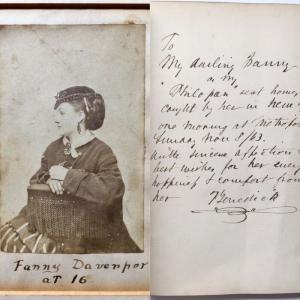 Fanny Davenpor
AT 16
To
My darling Fanny
on my
"Philopæna" sent home,
caught by her in New
one morning at Metropo
Sunday Nov 8/63.
With sincere affection
best wishes for her every
happiness & comfort from
her Benedick